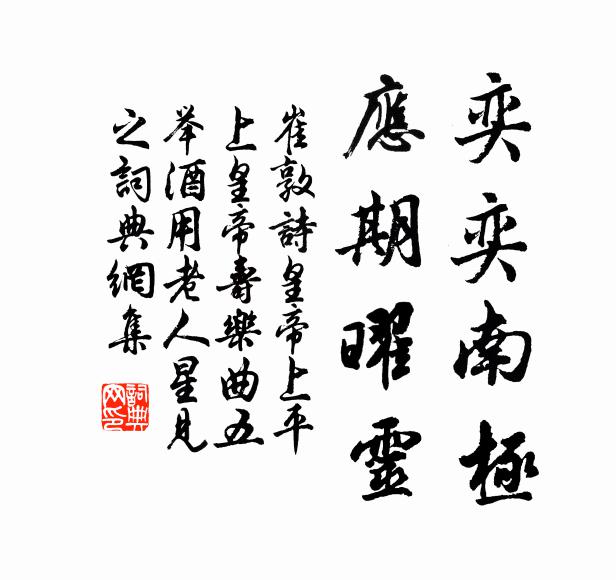 奕奕南極
應期曜靈
崔敦詩皇帝上平
上皇帝壽樂曲五
举酒用老人星見
之詞典網集
詞典
网印